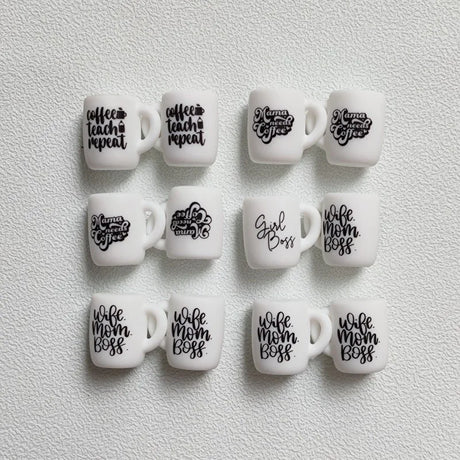 coffee
teach
repeat
coffee
teach
repeat
Mama
needs
Coffee
Mama
needs
Coffee
Mama
needs
Coffee
Mama
needs
Coffee
Girl
Boss
Wife.
Mom.
Boss.
Wife.
Mom.
Boss.
Wife.
Mom.
Boss.
Wife.
Mom.
Boss.
Wife.
Mom.
Boss.